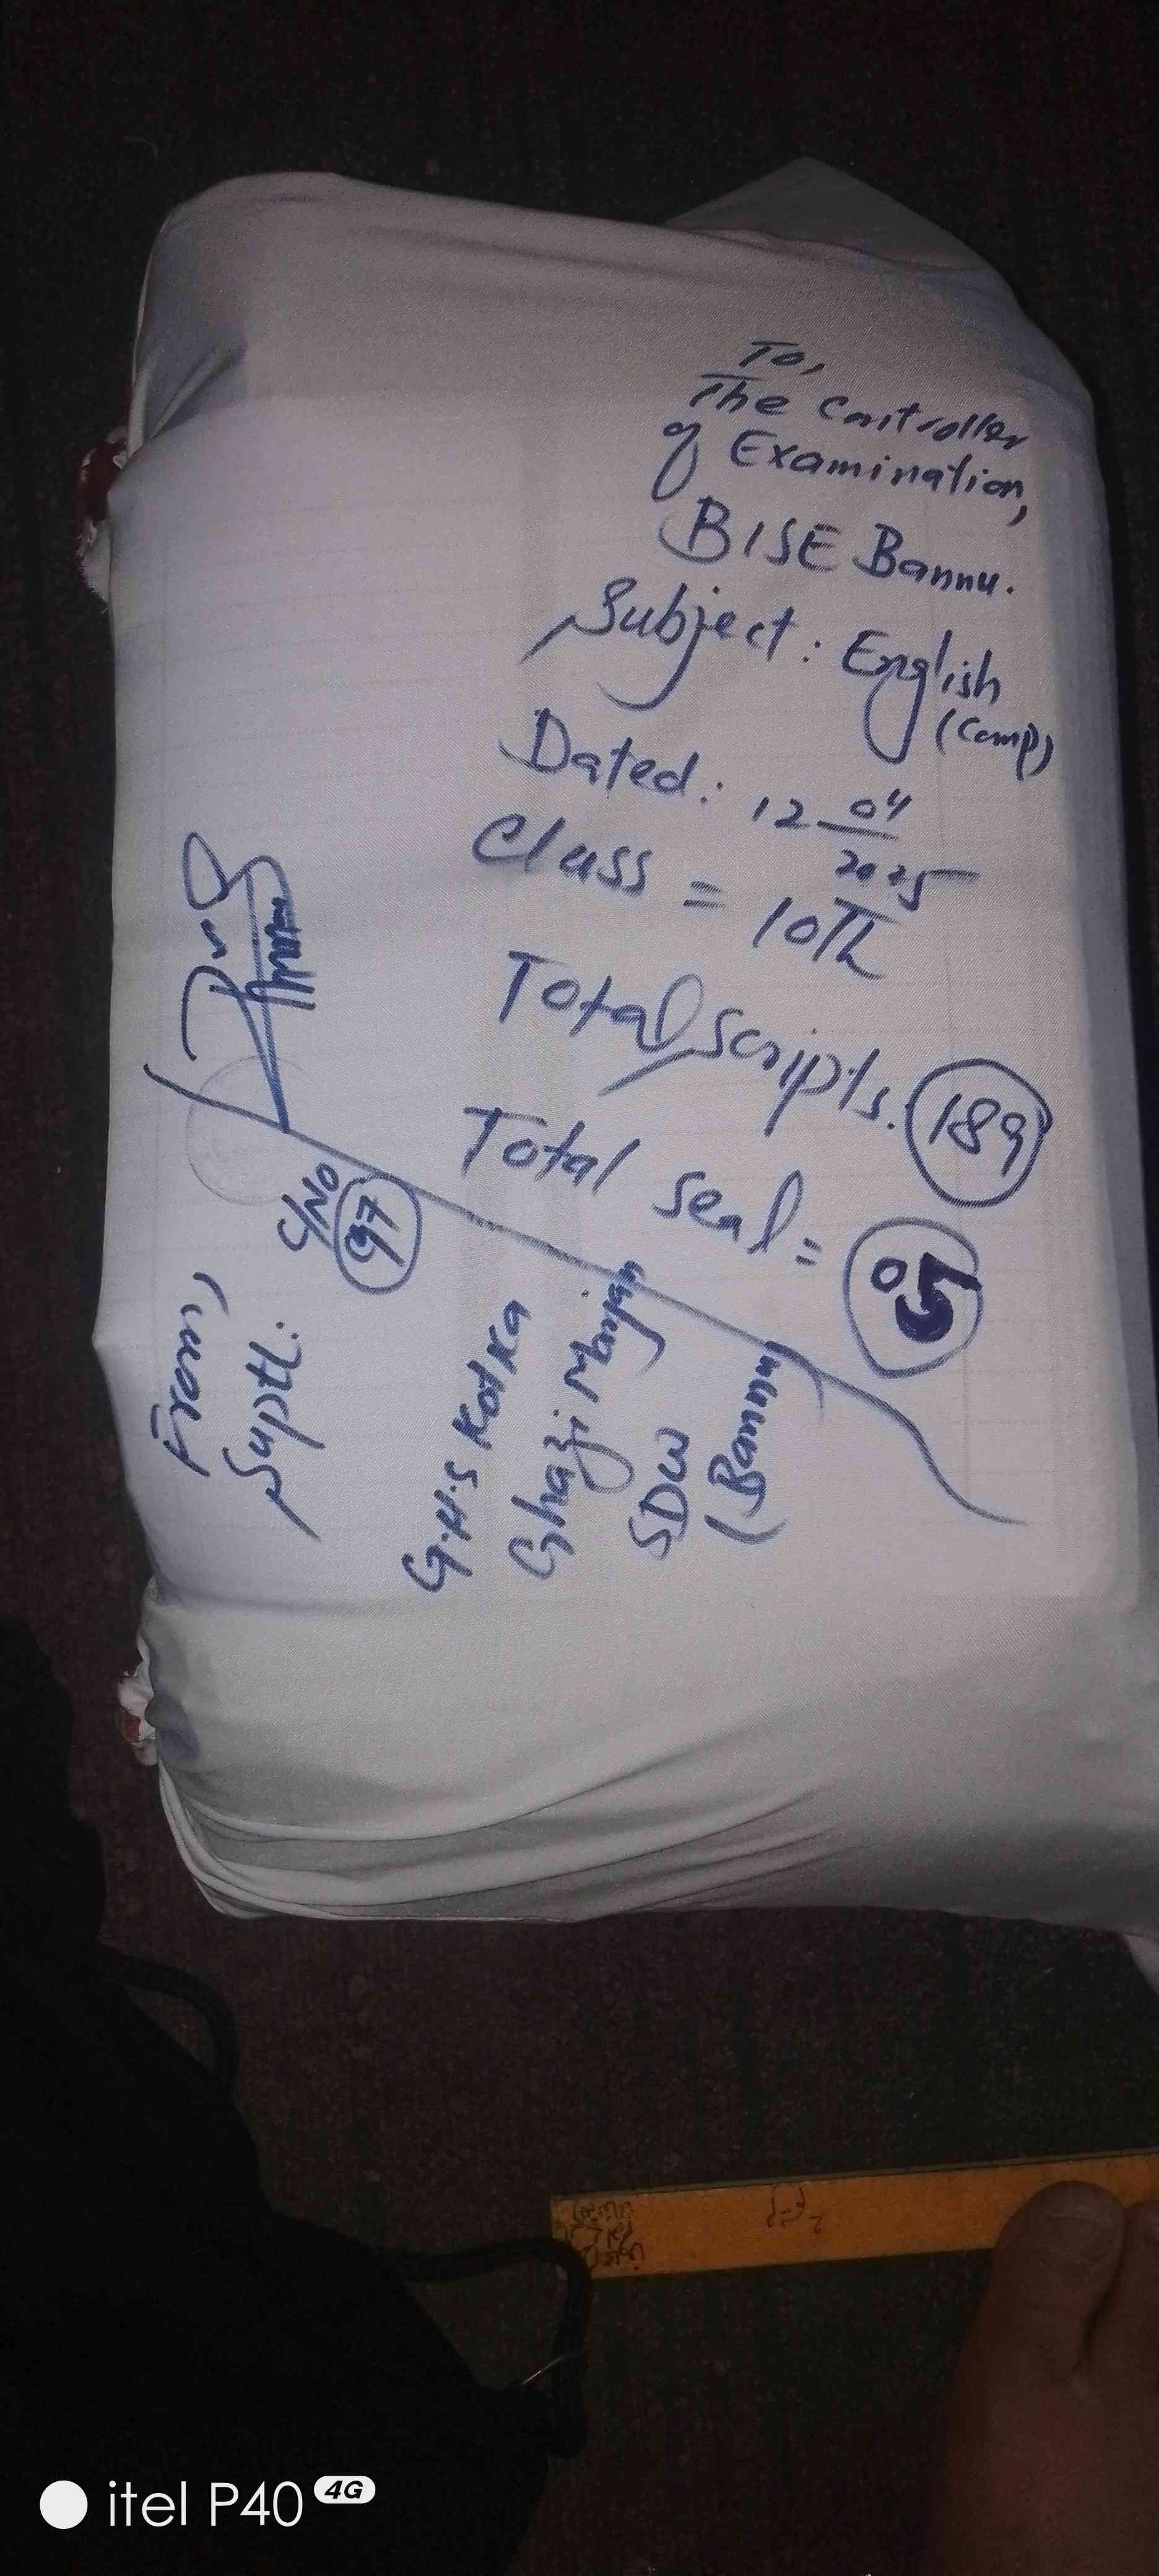 To,
The Controller
of Examination,
BISE Bannu.
Subject: English
(Comp)
Dated: 12 04
2025
Class = 10Th
Total Scripts. 189
Total Seal = 05
S/No
97
From,
Suptt:
G.H.S Kotka
Ghazi Marjan
SDW
(Bannu)
itel P40 4G